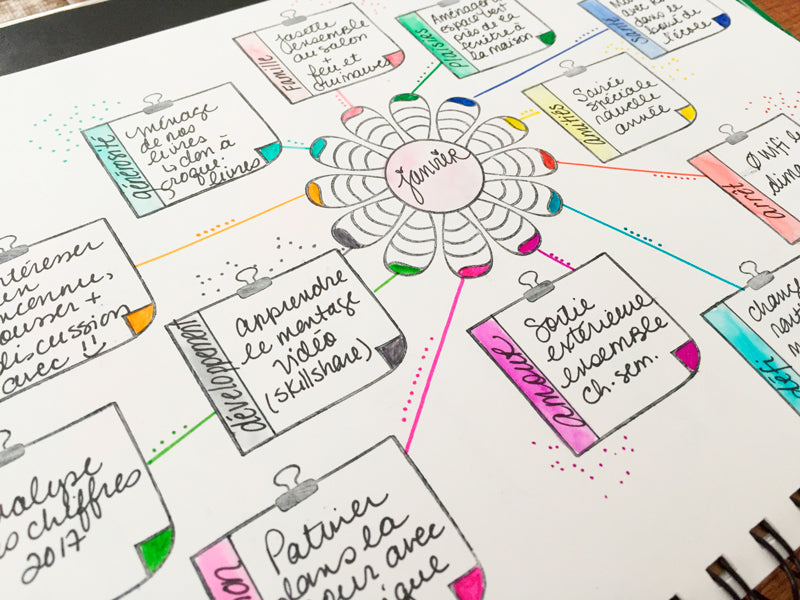 famille
Jasette
ensemble
au salon
+
feu et
guimauves
plaisirs
Aménager
espace vert
près de la
fenêtre à
la maison
santé
dans le
l'école
amitiés
Soirée
spéciale
nouvelle
année
générosité
Ménage
de nos
livres
↳ don à
croque-
livres
janvier
arrêt
Ø wifi
intéresser
inconnu,
pousser +
discussion
avec
développement
apprendre
le montage
vidéo
(skillshare)
amour
Sortie
extérieure
ensemble
ch. sem.
défi
analyse
chiffres
2017
Patiner
dans la
cour avec